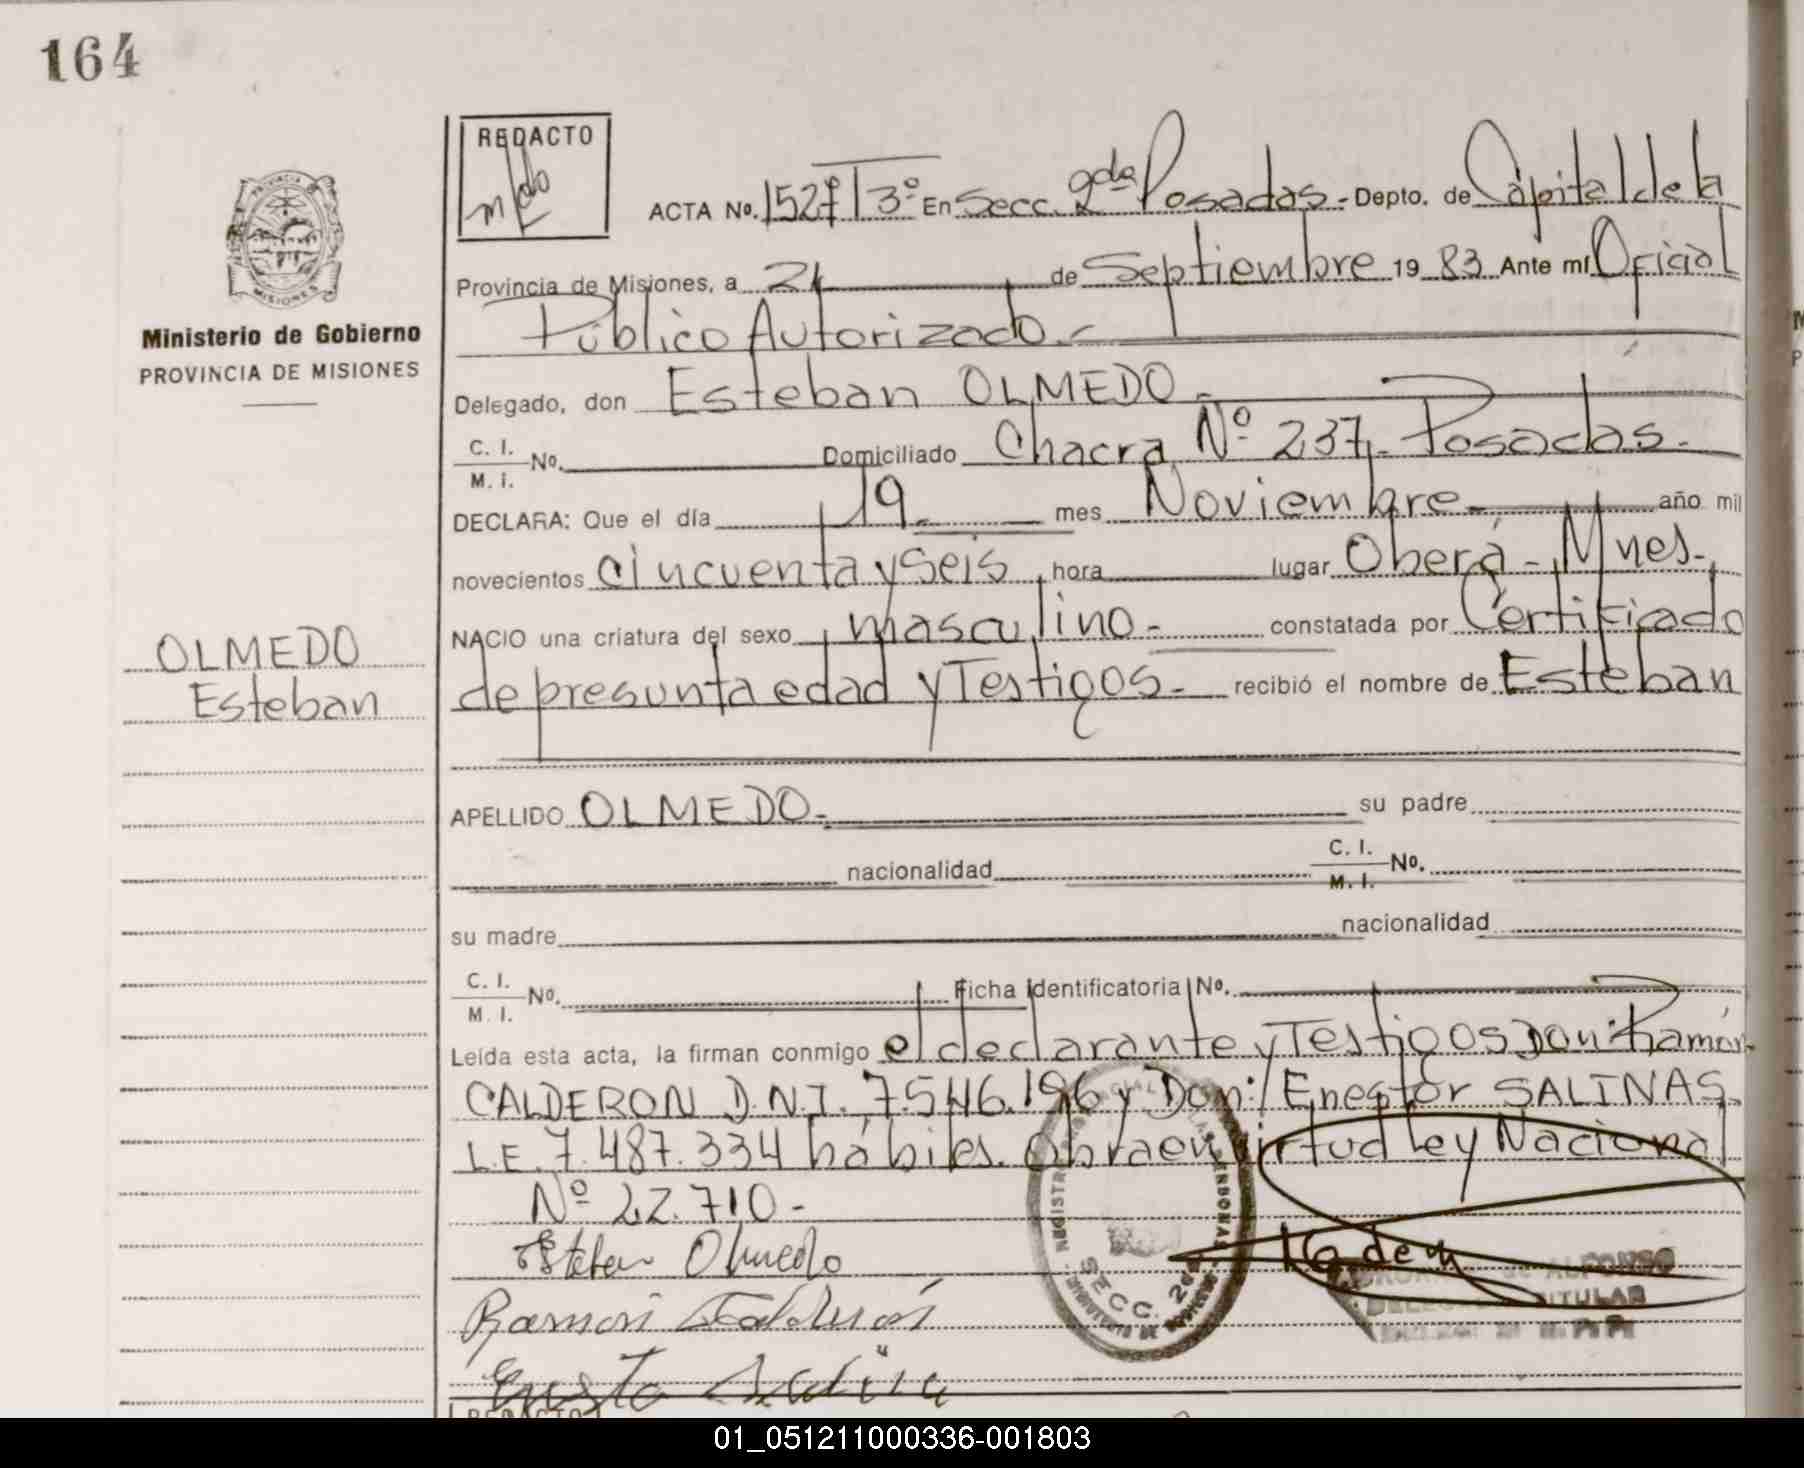 164
REDACTO
PROVINCIA DE MISIONES
ACTA No. 1527 T 3º En Secc. 2da Posadas.- Depto. de Capital de la
Provincia de Misiones, a 21 de Septiembre 19 83 Ante mí Oficial
Público Autorizado.-
Ministerio de Gobierno
PROVINCIA DE MISIONES
Delegado, don Esteban OLMEDO.-
C. I.
M. I. No. Domiciliado Chacra Nº 237.- Posadas.-
DECLARA: Que el día 19.- mes Noviembre.- año mil
novecientos cincuenta y seis hora lugar Oberá - Mnes.
NACIO una criatura del sexo masculino.- constatada por Certificado
OLMEDO
Esteban
de presunta edad y Testigos.- recibió el nombre de Esteban
APELLIDO OLMEDO.- su padre
nacionalidad C. I.
M. I. No.
su madre nacionalidad
C. I.
M. I. No. Ficha Identificatoria No.
Leída esta acta, la firman conmigo el declarante y Testigos Don: Ramón
CALDERON D.N.I. 7.546.196 y Don: Enestor SALINAS
L.E. 7.487.334 hábiles. Obra en virtud Ley Nacional
Nº 22.710.-
Esteban Olmedo
Ramon Calderón
SECC. 2da
de ALFONSO
TITULAR
REDACTO
01_051211000336-001803